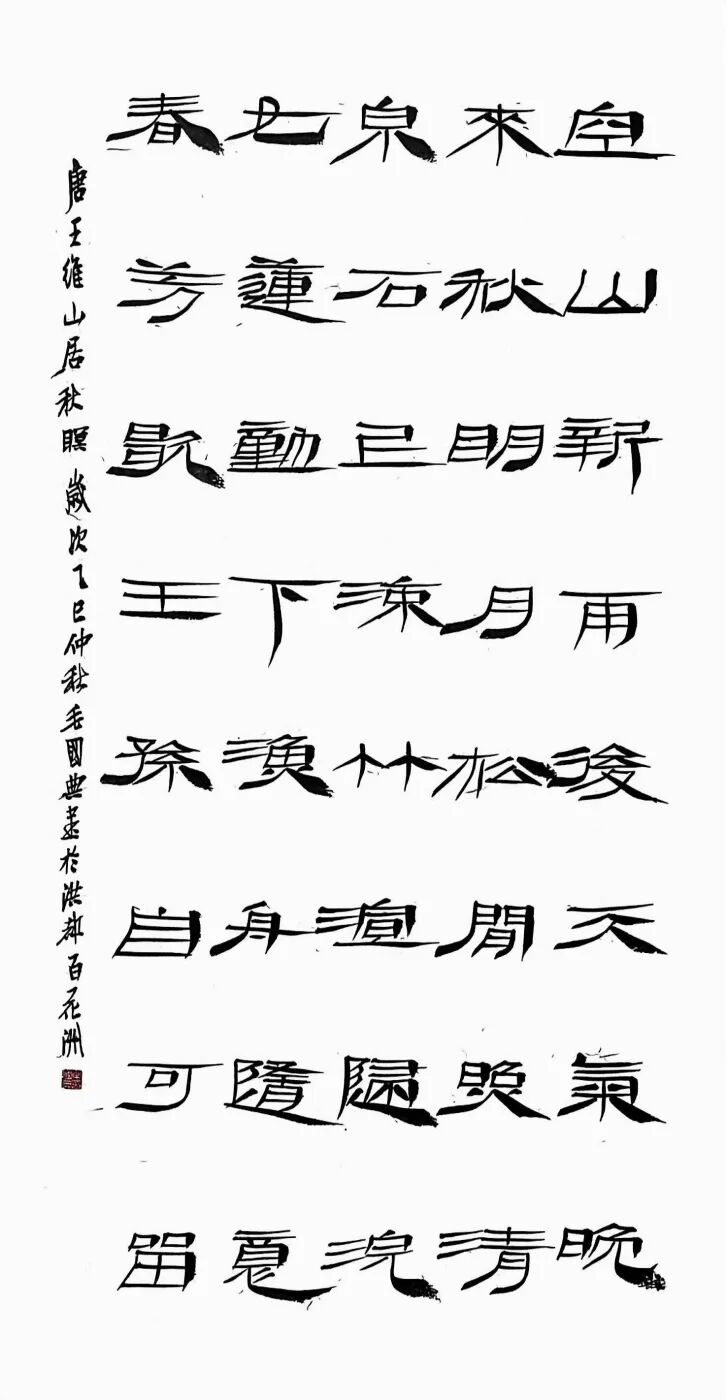 空山新雨後天氣晚
來秋明月松間照清
泉石上流竹喧歸浣
女蓮動下漁舟隨意
春芳歇王孫自可留
唐王維山居秋暝歲次乙巳仲秋毛國典書於洪都百花洲